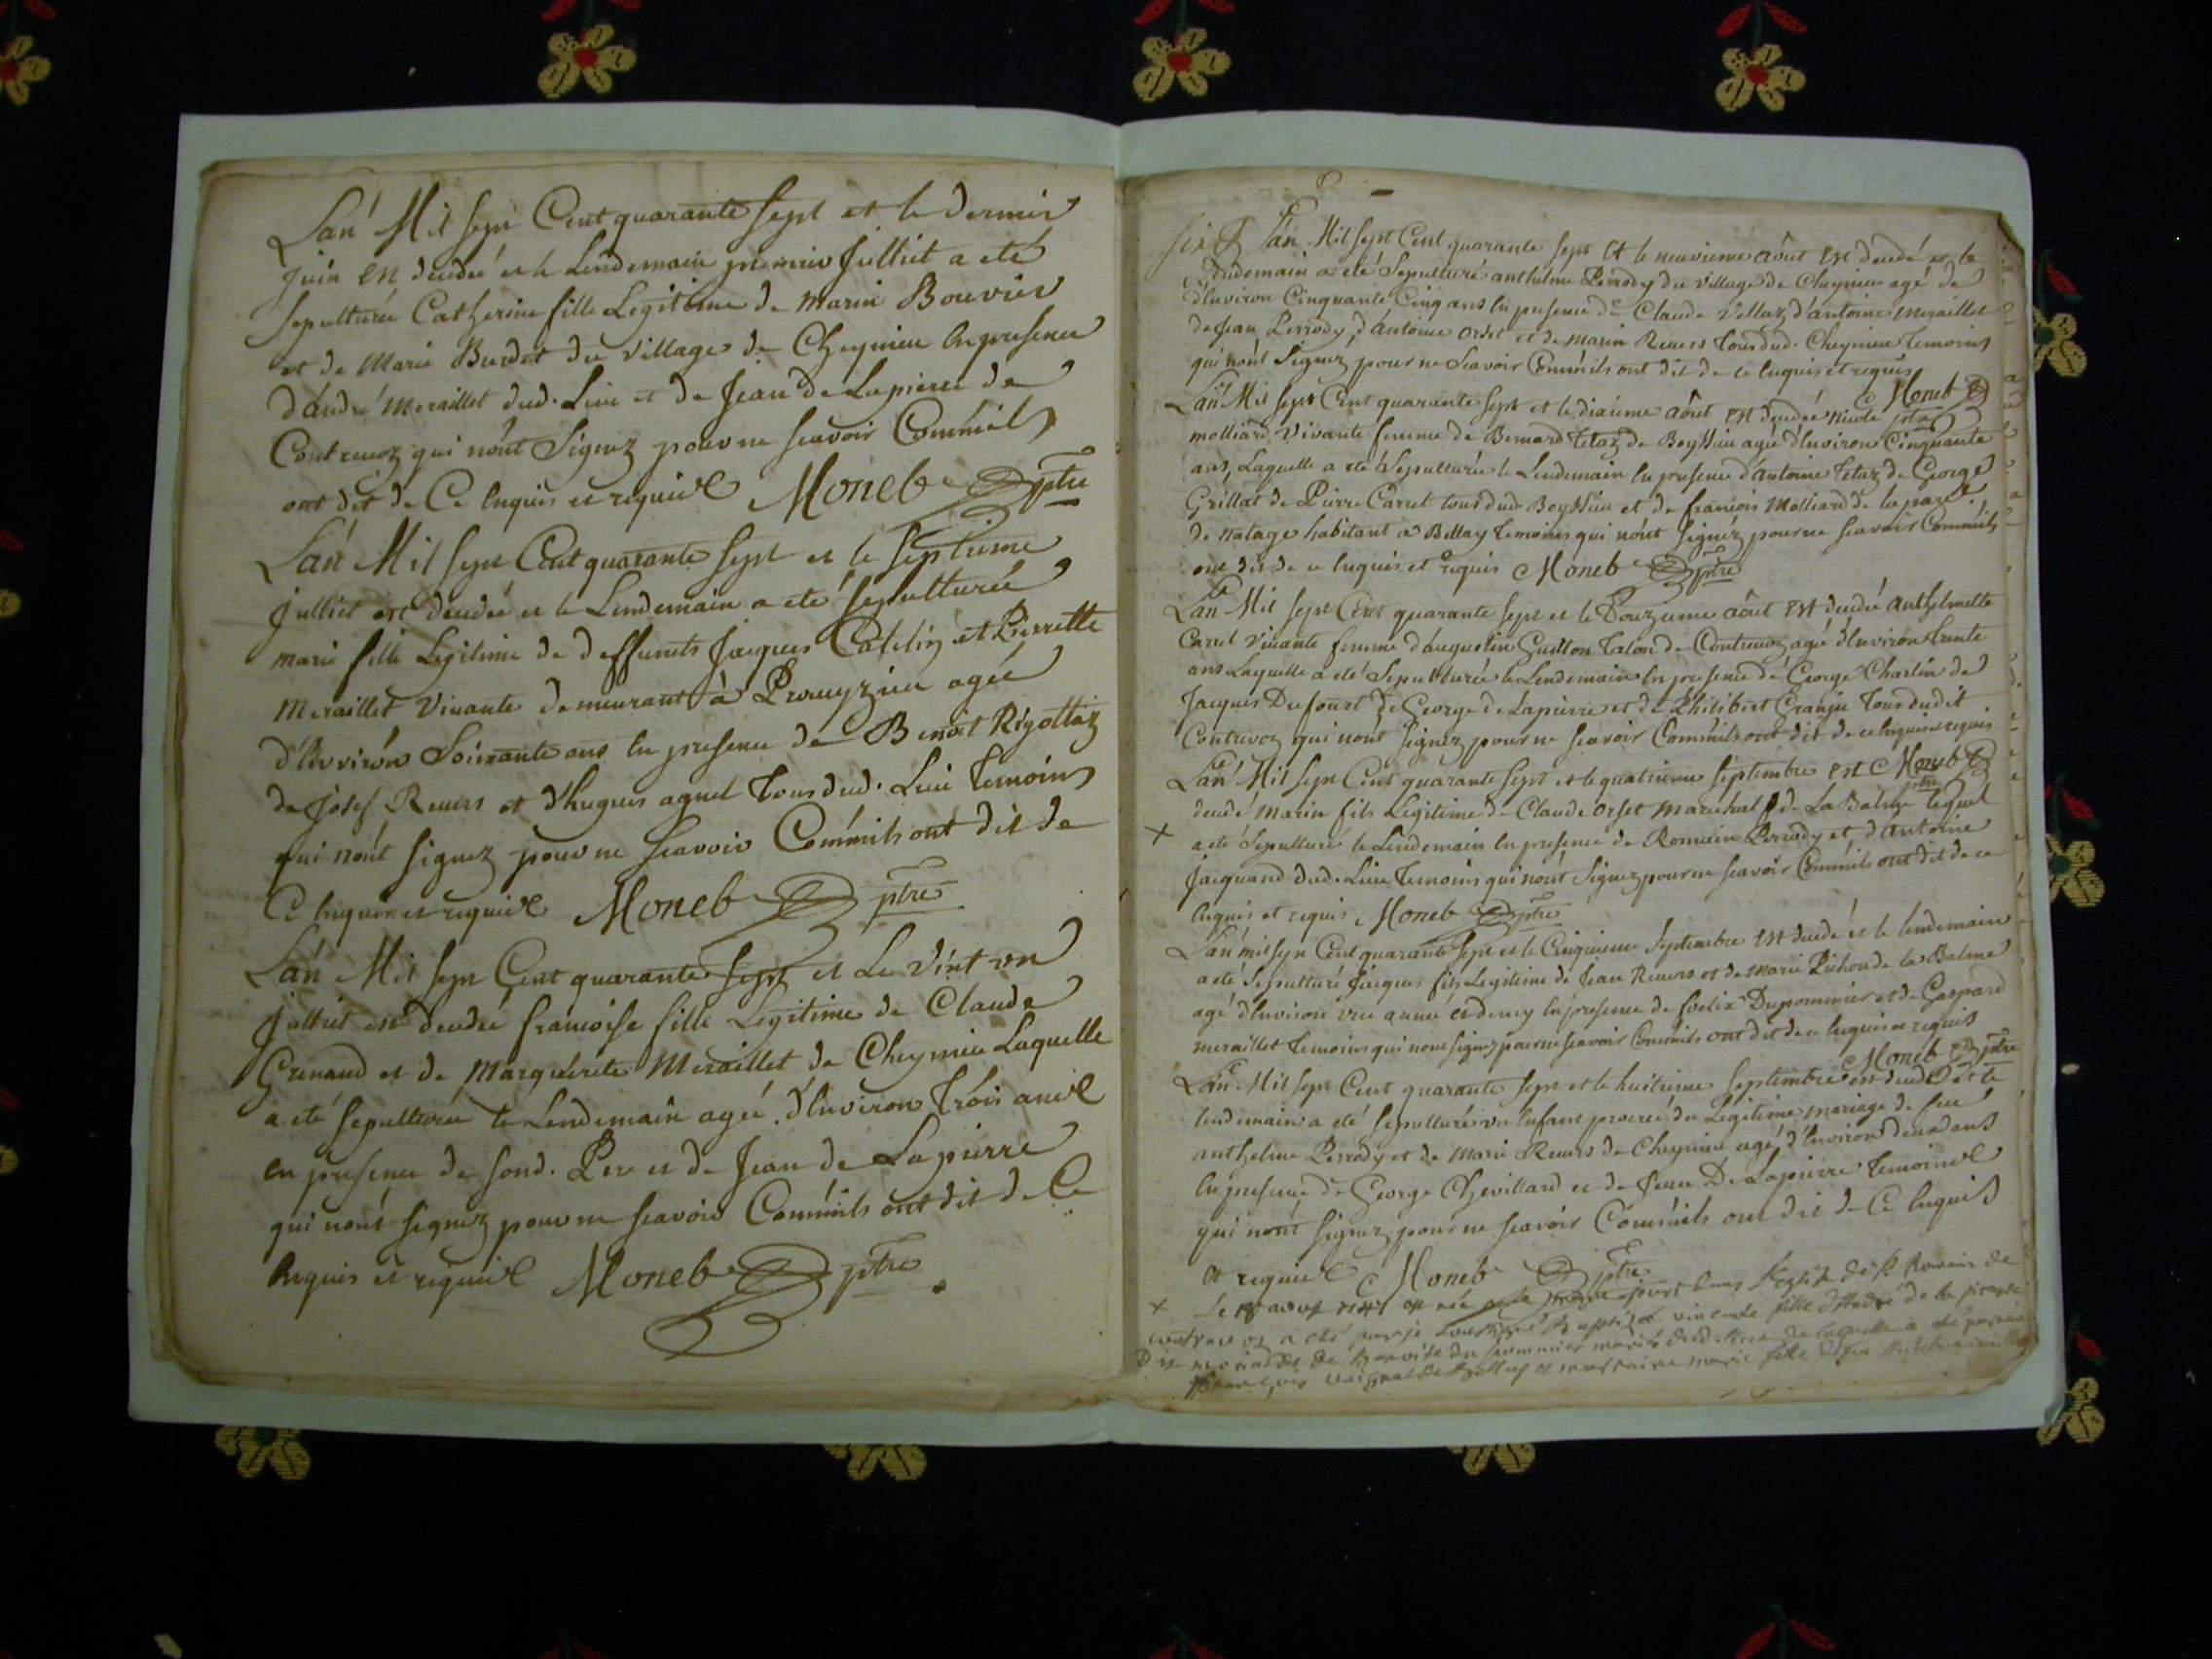 L'an Mil sept Cent quarante sept et le dernier
juin est decedeé et le Lendemain premier Julliet a eté
sepulturée Catherine fille Legitime de marin Bouvier
et de Marie Burdet du village de Cheynieu en presence
d'andré meraillet dud. Lieu et de Jean de Lapierre de
Contrevoz qui n'ont Signez pour ne scavoir Comm'ils
ont dit de Ce enquis et requis Moneb ptre
L'an Mil sept Cent quarante sept et le septieme
julliet est decedeé et le Lendemain a eté sepulturée
marie fille Legitime de deffunts Jacques Catelin et Pierrette
Meraillet vivante demeurant à Preveyzieu ageé
d'Environ Soixante ans en presence de Benoit Rigottaz
de Josef Revers et d'hugues agnel Tous dud. Lieu Temoins
qui n'ont signez pour ne scavoir Comm'ils ont dit de
Ce enquis et requis Moneb ptre
L'an Mil sept Cent quarante sept et Le Vint un
julliet est decedeé francoise fille Legitime de Claude
Grinand et de Marguerite Meraillet de Cheynieu Laquelle
a eté sepulturée le Lendemain ageé d'Environ Trois ans
en presence de sond. Pere et de Jean de Lapierre
qui n'ont signez pour ne scavoir Comm'ils ont dit de Ce
Enquis et requis Moneb ptre
six L'an Mil sept Cent quarante sept et le neuvieme aôut est decedé et le
Lendemain a eté Sepulturé anthelme Perrody du village de Cheynieu agé de
d'Environ Cinquante Cinq ans en presence de Claude Vellaz d'antoine Meraillet
de Jean Perrody, d'antoine orset et de marin Revers Tous dud. Cheynieu Temoins
qui n'ont Signez pour ne Scavoir Comm'ils ont dit de ce enquis et requis
Moneb ptre
L'an Mil sept Cent quarante sept et le dixieme aôut est decedeé nicole
molliard vivante femme de Bernard Tetaz de Boyssieu ageé d'Environ Cinquante
ans, Laquelle a eté Sepulturée le Lendemain en presence d'antoine Tetaz de George
Grillat de Pierre Carrel tous dud. Boyssieu et de francois Molliard de la par
de natage habitant a Bellay temoins qui n'ont signéz pour ne scavoir Comm'ils
ont dit de ce enquis et requis Moneb ptre
L'an Mil sept Cent quarante sept et le Douzieme aôut est decedeé anthelmette
Carrel vivante femme d'augustin Guitton Talon de Contrevoz ageé d'Environ trente
ans Laquelle a eté Sepulturée le Lendemain en presence de George Charlin de
Jacques Dufourt de George de Lapierre et de Philibert Granju Tous dudit
Contrevoz qui n'ont signez pour ne scavoir Comm'ils ont dit de ce enquis et requis
Moneb ptre
L'an Mil sept Cent quarante sept et le quatrieme septembre est
decedé Marin fils Legitime de Claude Orset marechal de La Balme lequel
x a eté Sepulturé le Lendemain en presence de Romain Perrody et d'antoine
Jacquand dud. Lieu Temoins qui n'ont Signez pour ne scavoir Comm'ils ont dit de ce
enquis et requis Moneb ptre
L'an mil sept Cent quarante sept et le Cinquieme Septembre est decedé et le lendemain
a eté Sepulturé Jacques fils Legitime de Jean Revers et de marie Pichon de la Balme
agé d'Environ une anneé et demy en presence de foelix Dupommier et de Gaspard
meraillet Temoins qui n'ont signez pour ne scavoir Comm'ils ont dit de ce enquis et requis
Moneb ptre
L'an Mil sept Cent quarante sept et le huitieme septembre est decedé et le
lendemain a eté sepulturé un enfant procreé du Legitime mariage de feu
anthelme Perrody et de Marie Revers de Cheynieu agé d'Environ deux ans
en presence de George Chevillard et de Jean De Lapierre Temoins
qui n'ont signez pour ne scavoir Comm'ils ont dit de Ce enquis
et requis Moneb ptre
x Le est née le jour dans l'eglise de st Romain de
contrevoz a eté par je baptizée vincente fille d'andré de la pierre
et de du pommier mariés de laquelle a eté parrain
et marraine marie fille de feu